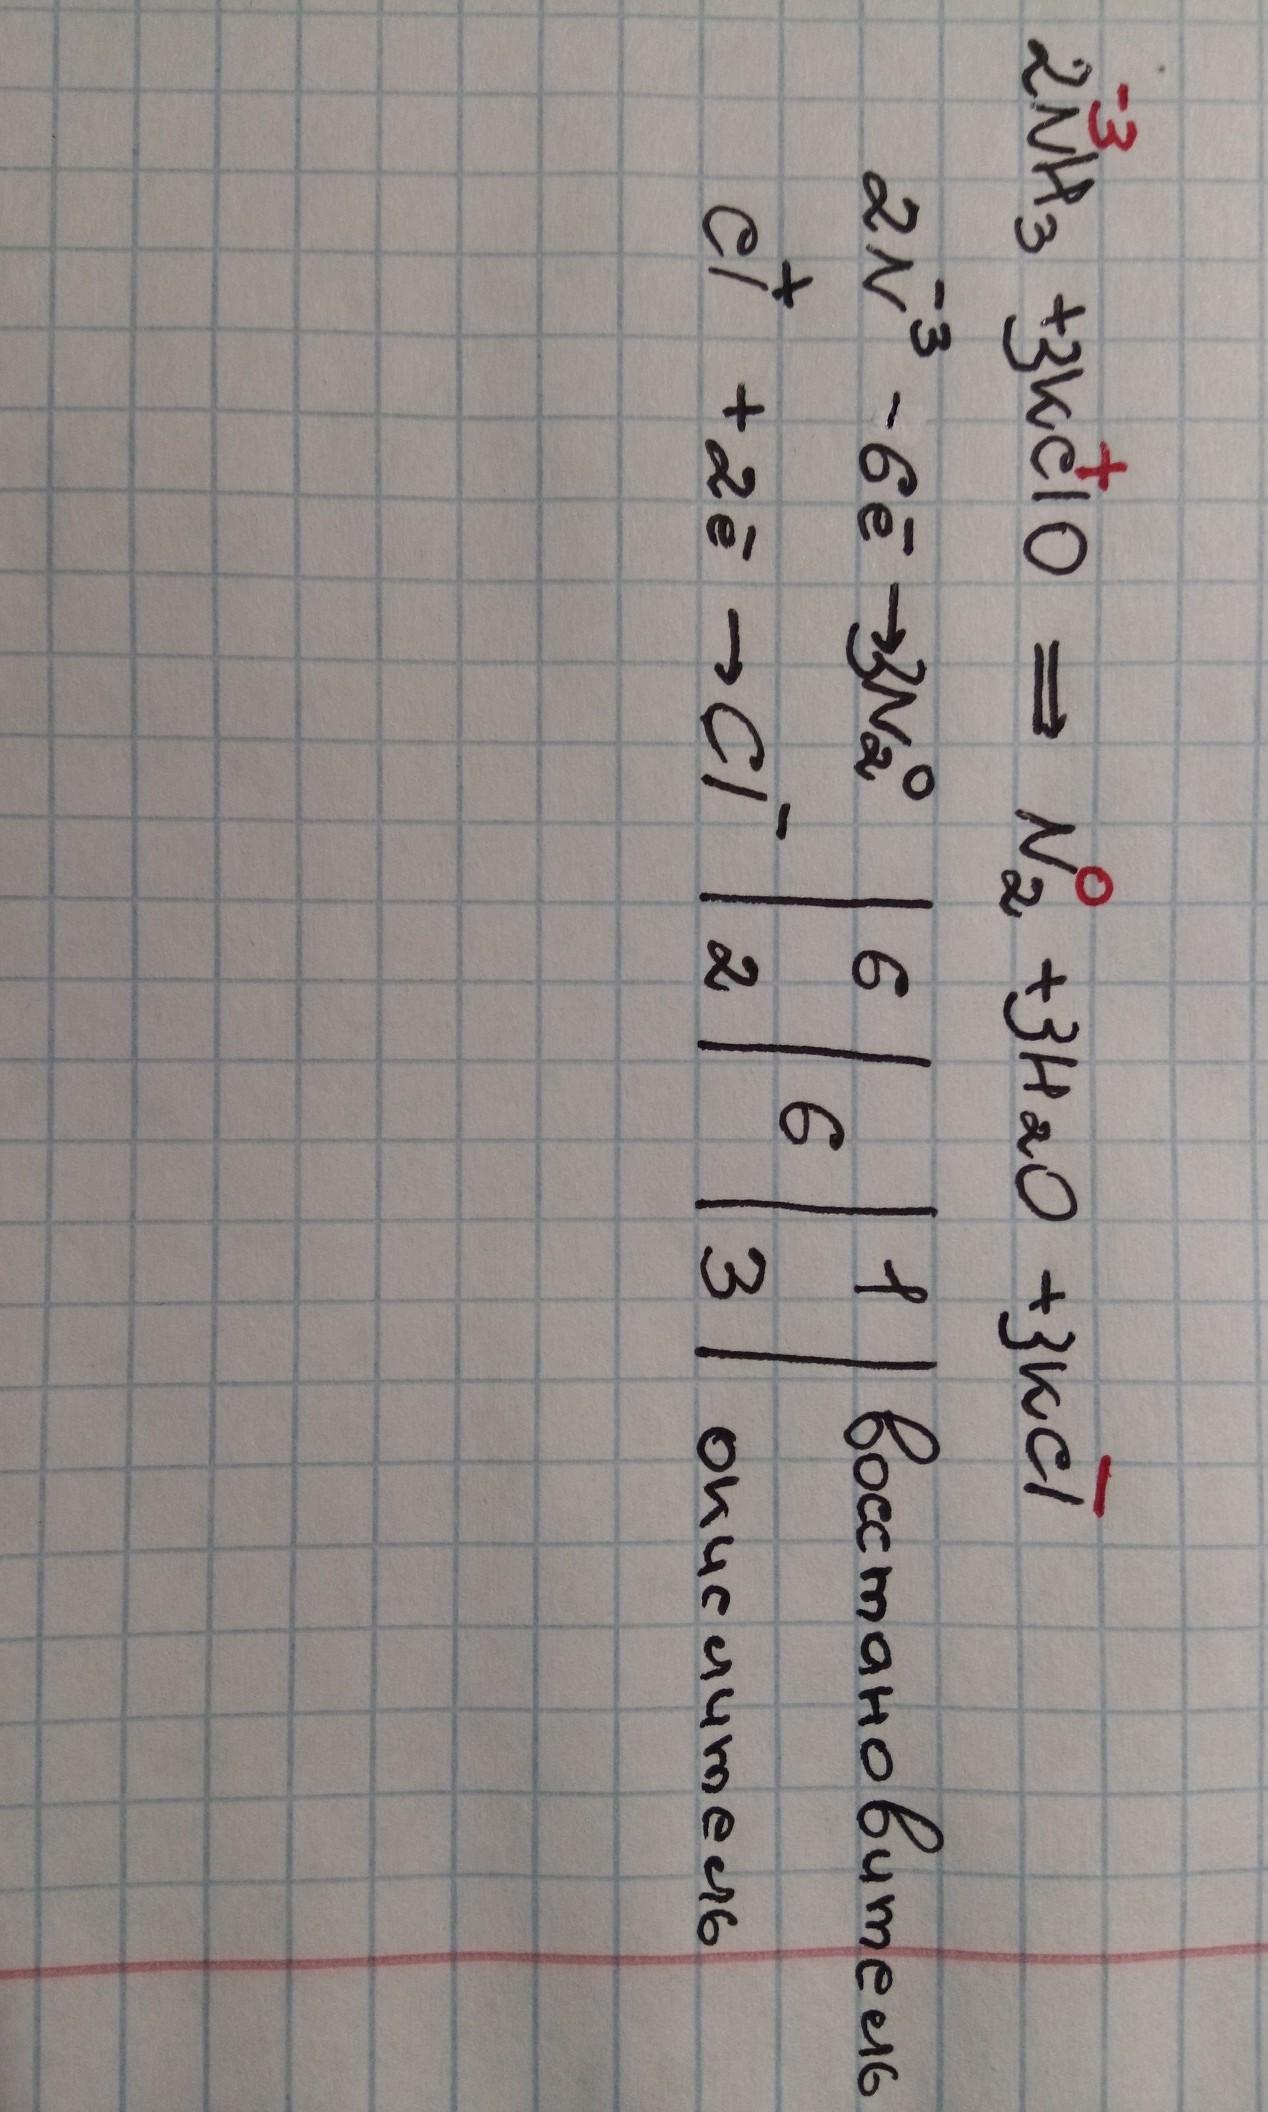 2N⁻³H₃ + 3KCl⁺O = N₂⁰ + 3H₂O + 3KCl⁻
2N⁻³ - 6e⁻ → 3N₂⁰ | 6 | 6 | 1 | восстановитель
Cl⁺ + 2e⁻ → Cl⁻ | 2 | | 3 | окислитель